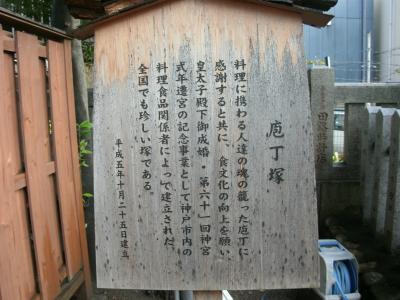 庖丁塚
料理に携わる人達の魂の籠った庖丁に
感謝すると共に、食文化の向上を願い、
皇太子殿下御成婚・第六十一回神宮
式年遷宮の記念事業として神戸市内の
料理食品関係者によって建立された、
全国でも珍しい塚である。
平成五年十月二十五日建立